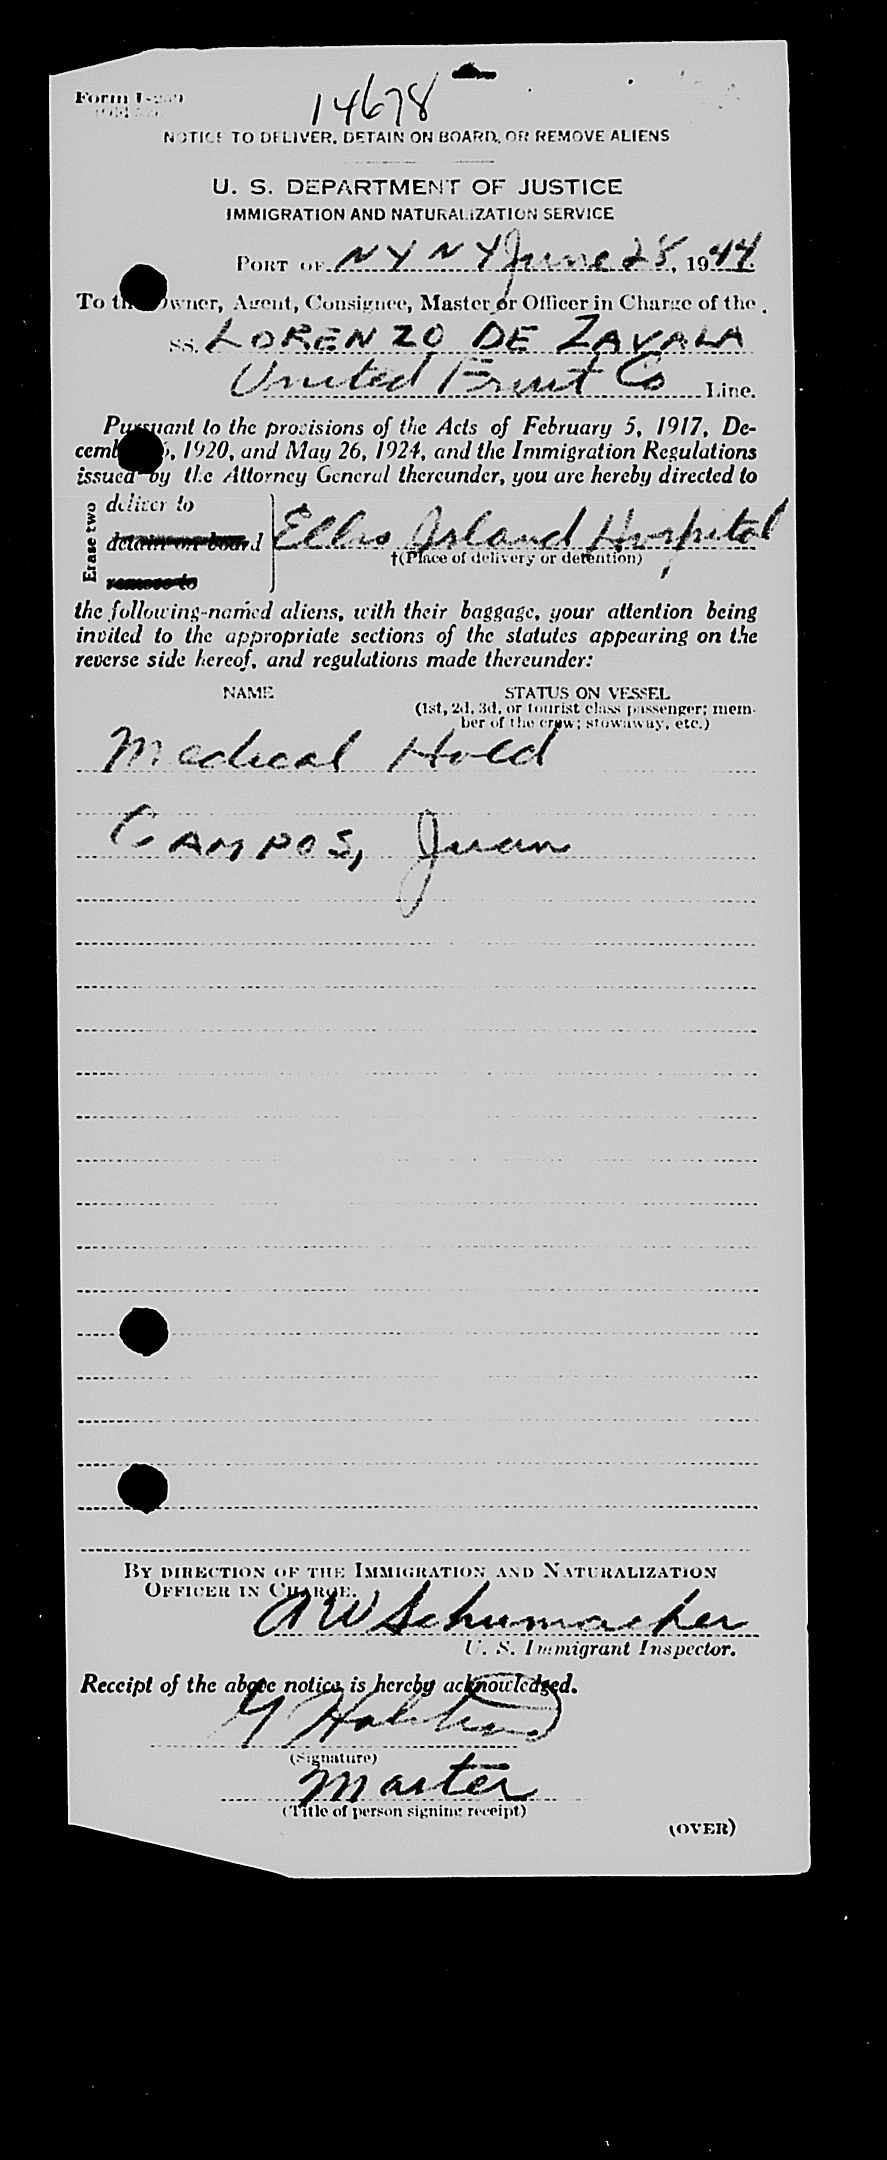 Form I-259
14678
NOTICE TO DELIVER, DETAIN ON BOARD, OR REMOVE ALIENS
U. S. DEPARTMENT OF JUSTICE
IMMIGRATION AND NATURALIZATION SERVICE
PORT OF N Y N Y June 28, 1944
To the Owner, Agent, Consignee, Master or Officer in Charge of the
SS. LORENZO DE ZAVALA
United Fruit Co Line.
Pursuant to the provisions of the Acts of February 5, 1917, De-
cember 26, 1920, and May 26, 1924, and the Immigration Regulations
issued by the Attorney General thereunder, you are hereby directed to
Erase two
deliver to
detain on board
remove to
Ellis Island Hospital
†(Place of delivery or detention)
the following-named aliens, with their baggage, your attention being
invited to the appropriate sections of the statutes appearing on the
reverse side hereof, and regulations made thereunder:
NAME STATUS ON VESSEL
(1st, 2d, 3d, or tourist class passenger; mem-
ber of the crew; stowaway, etc.)
Medical Hold
CAMPOS, Juan
BY DIRECTION OF THE IMMIGRATION AND NATURALIZATION
OFFICER IN CHARGE.
A W Schumacher
U. S. Immigrant Inspector.
Receipt of the above notice is hereby acknowledged.
(Signature)
Master
(Title of person signing receipt)
(OVER)